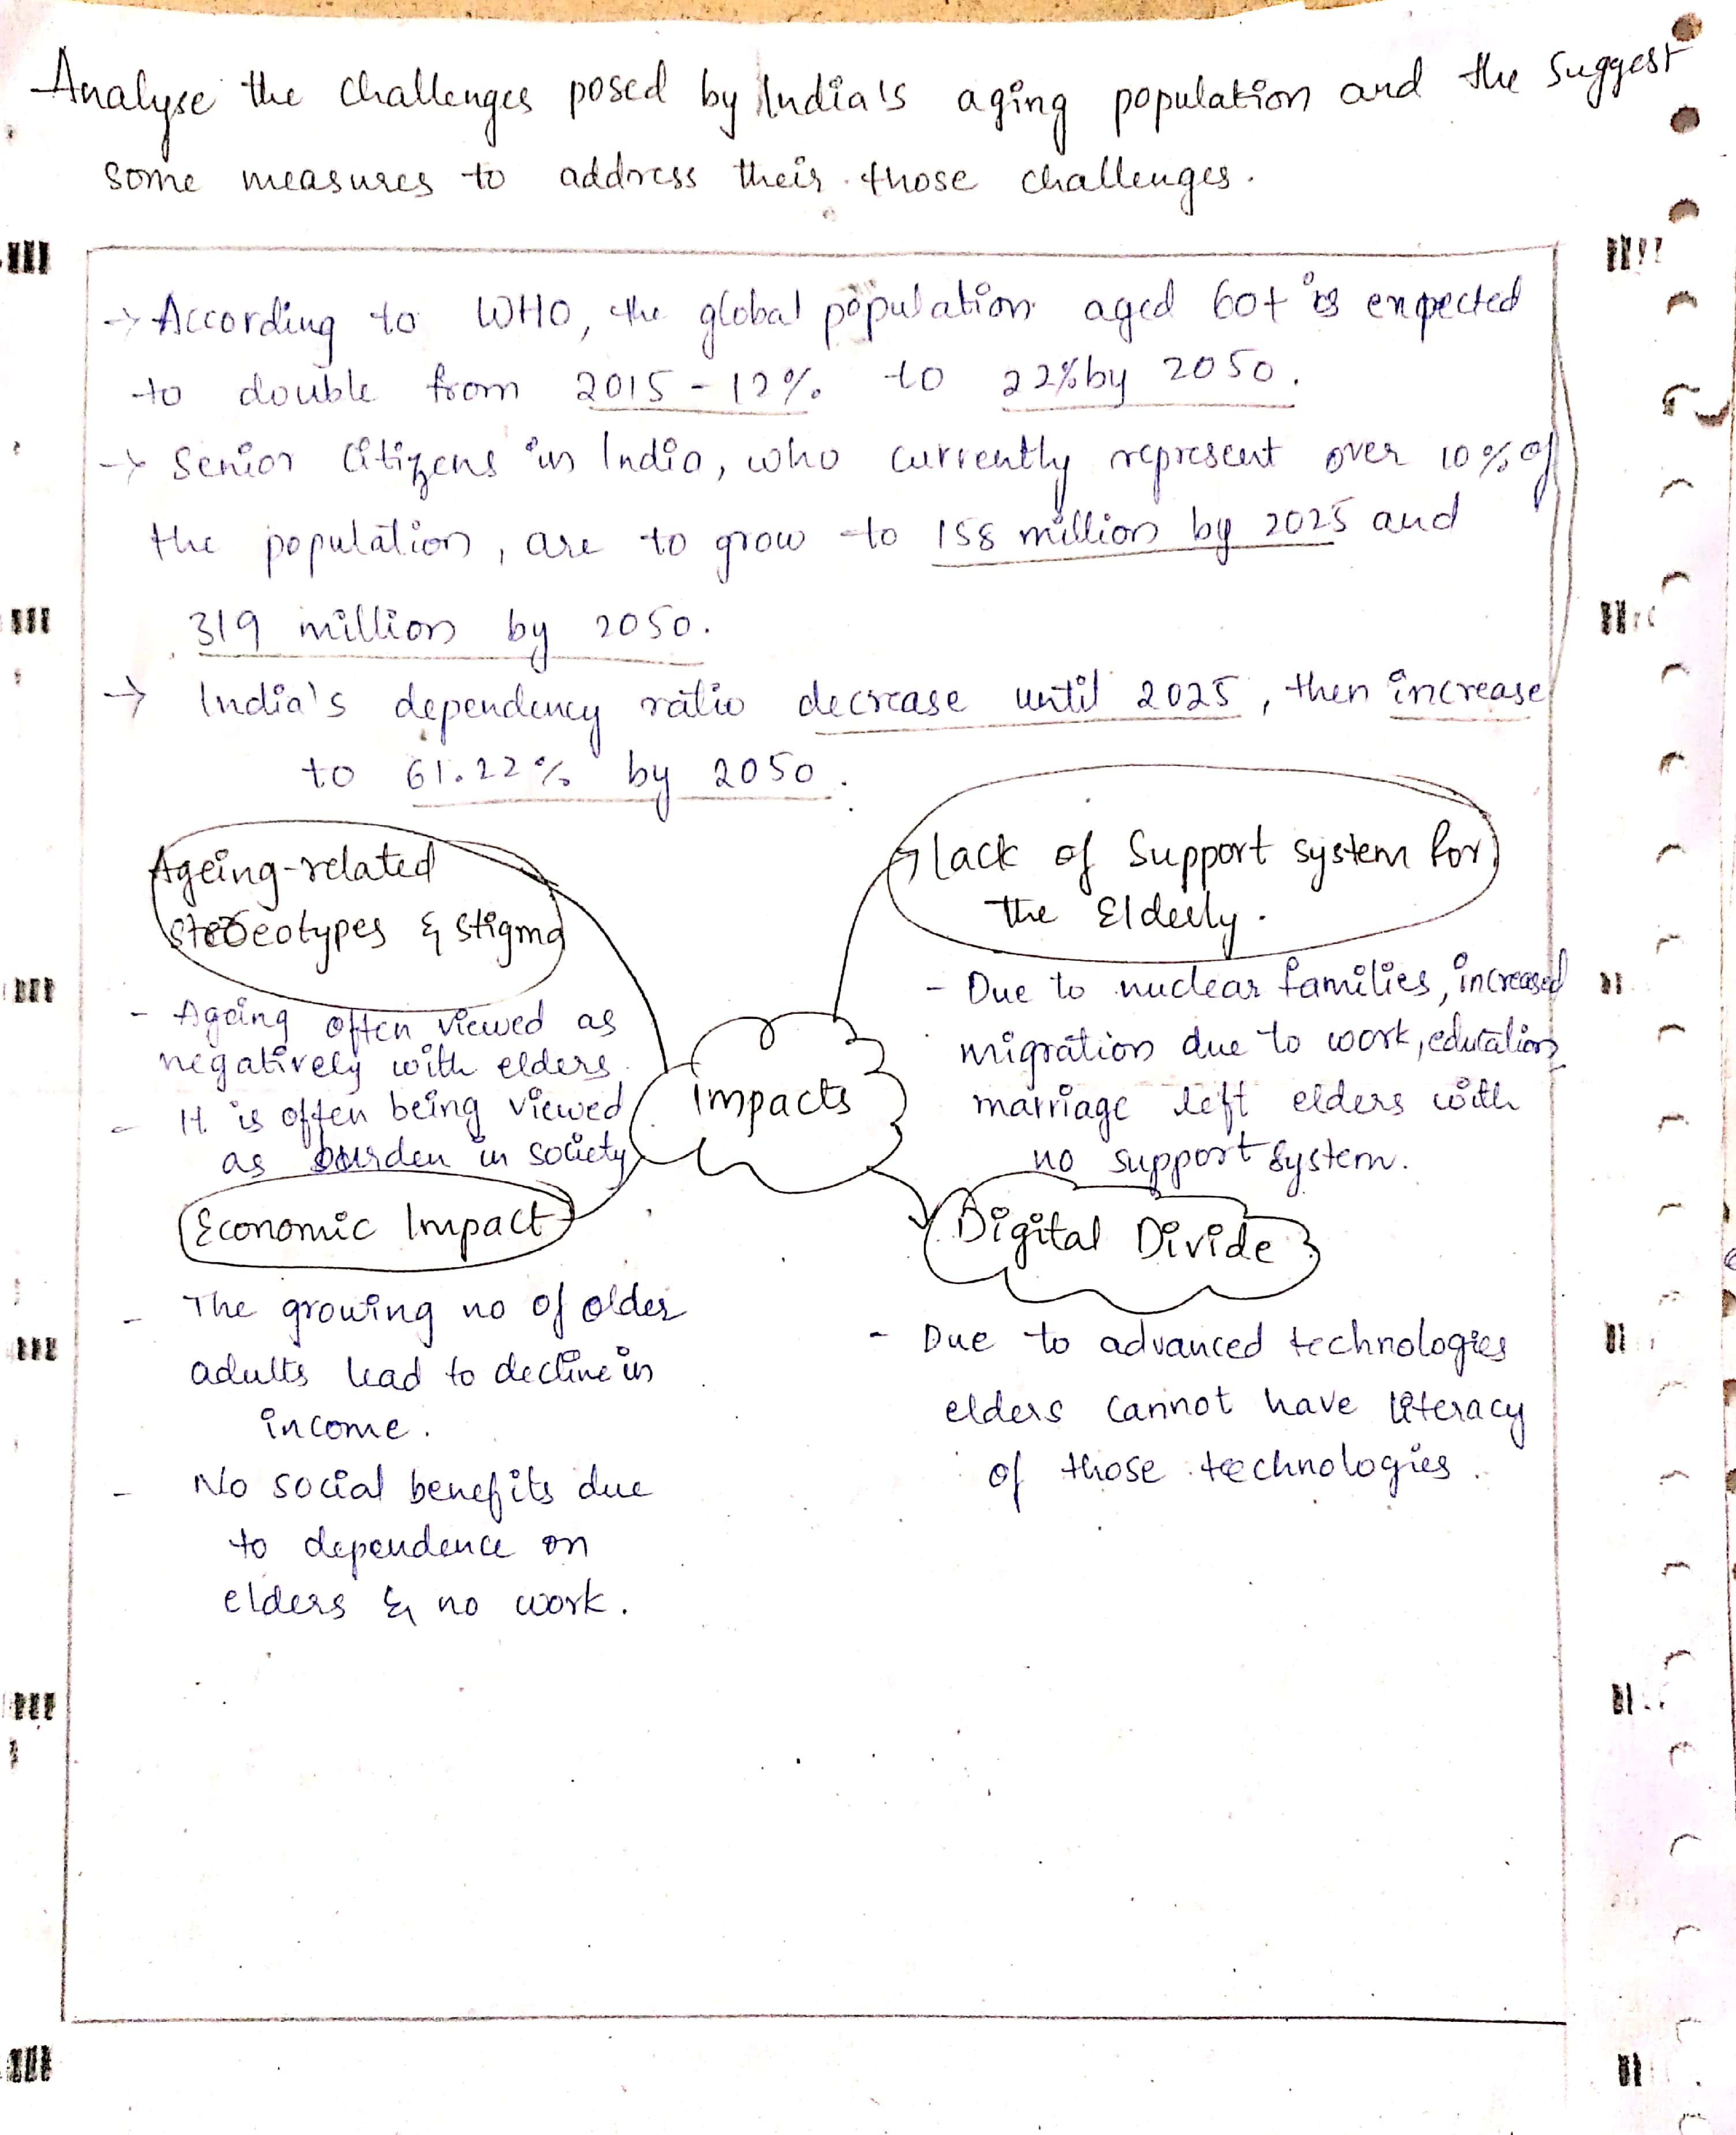 Analyse the challenges posed by India's aging population and the suggest
some measures to address their those challenges.
→ According to WHO, the global population aged 60+ is expected
to double from 2015 - 12% to 22% by 2050.
→ Senior Citizens in India, who currently represent over 10% of
the population, are to grow to 158 million by 2025 and
319 million by 2050.
→ India's dependency ratio decrease until 2025, then increase
to 61.22% by 2050.
Ageing-related
stereotypes & stigma
- Ageing often viewed as
negatively with elders.
- It is often being viewed
as burden in society
Economic Impact
- The growing no of older
adults lead to decline in
income.
- No social benefits due
to dependence on
elders & no work.
Impacts
Lack of Support system for
the Elderly.
- Due to nuclear families, increased
migration due to work, education,
marriage left elders with
no support system.
Digital Divide
- Due to advanced technologies
elders cannot have literacy
of those technologies.